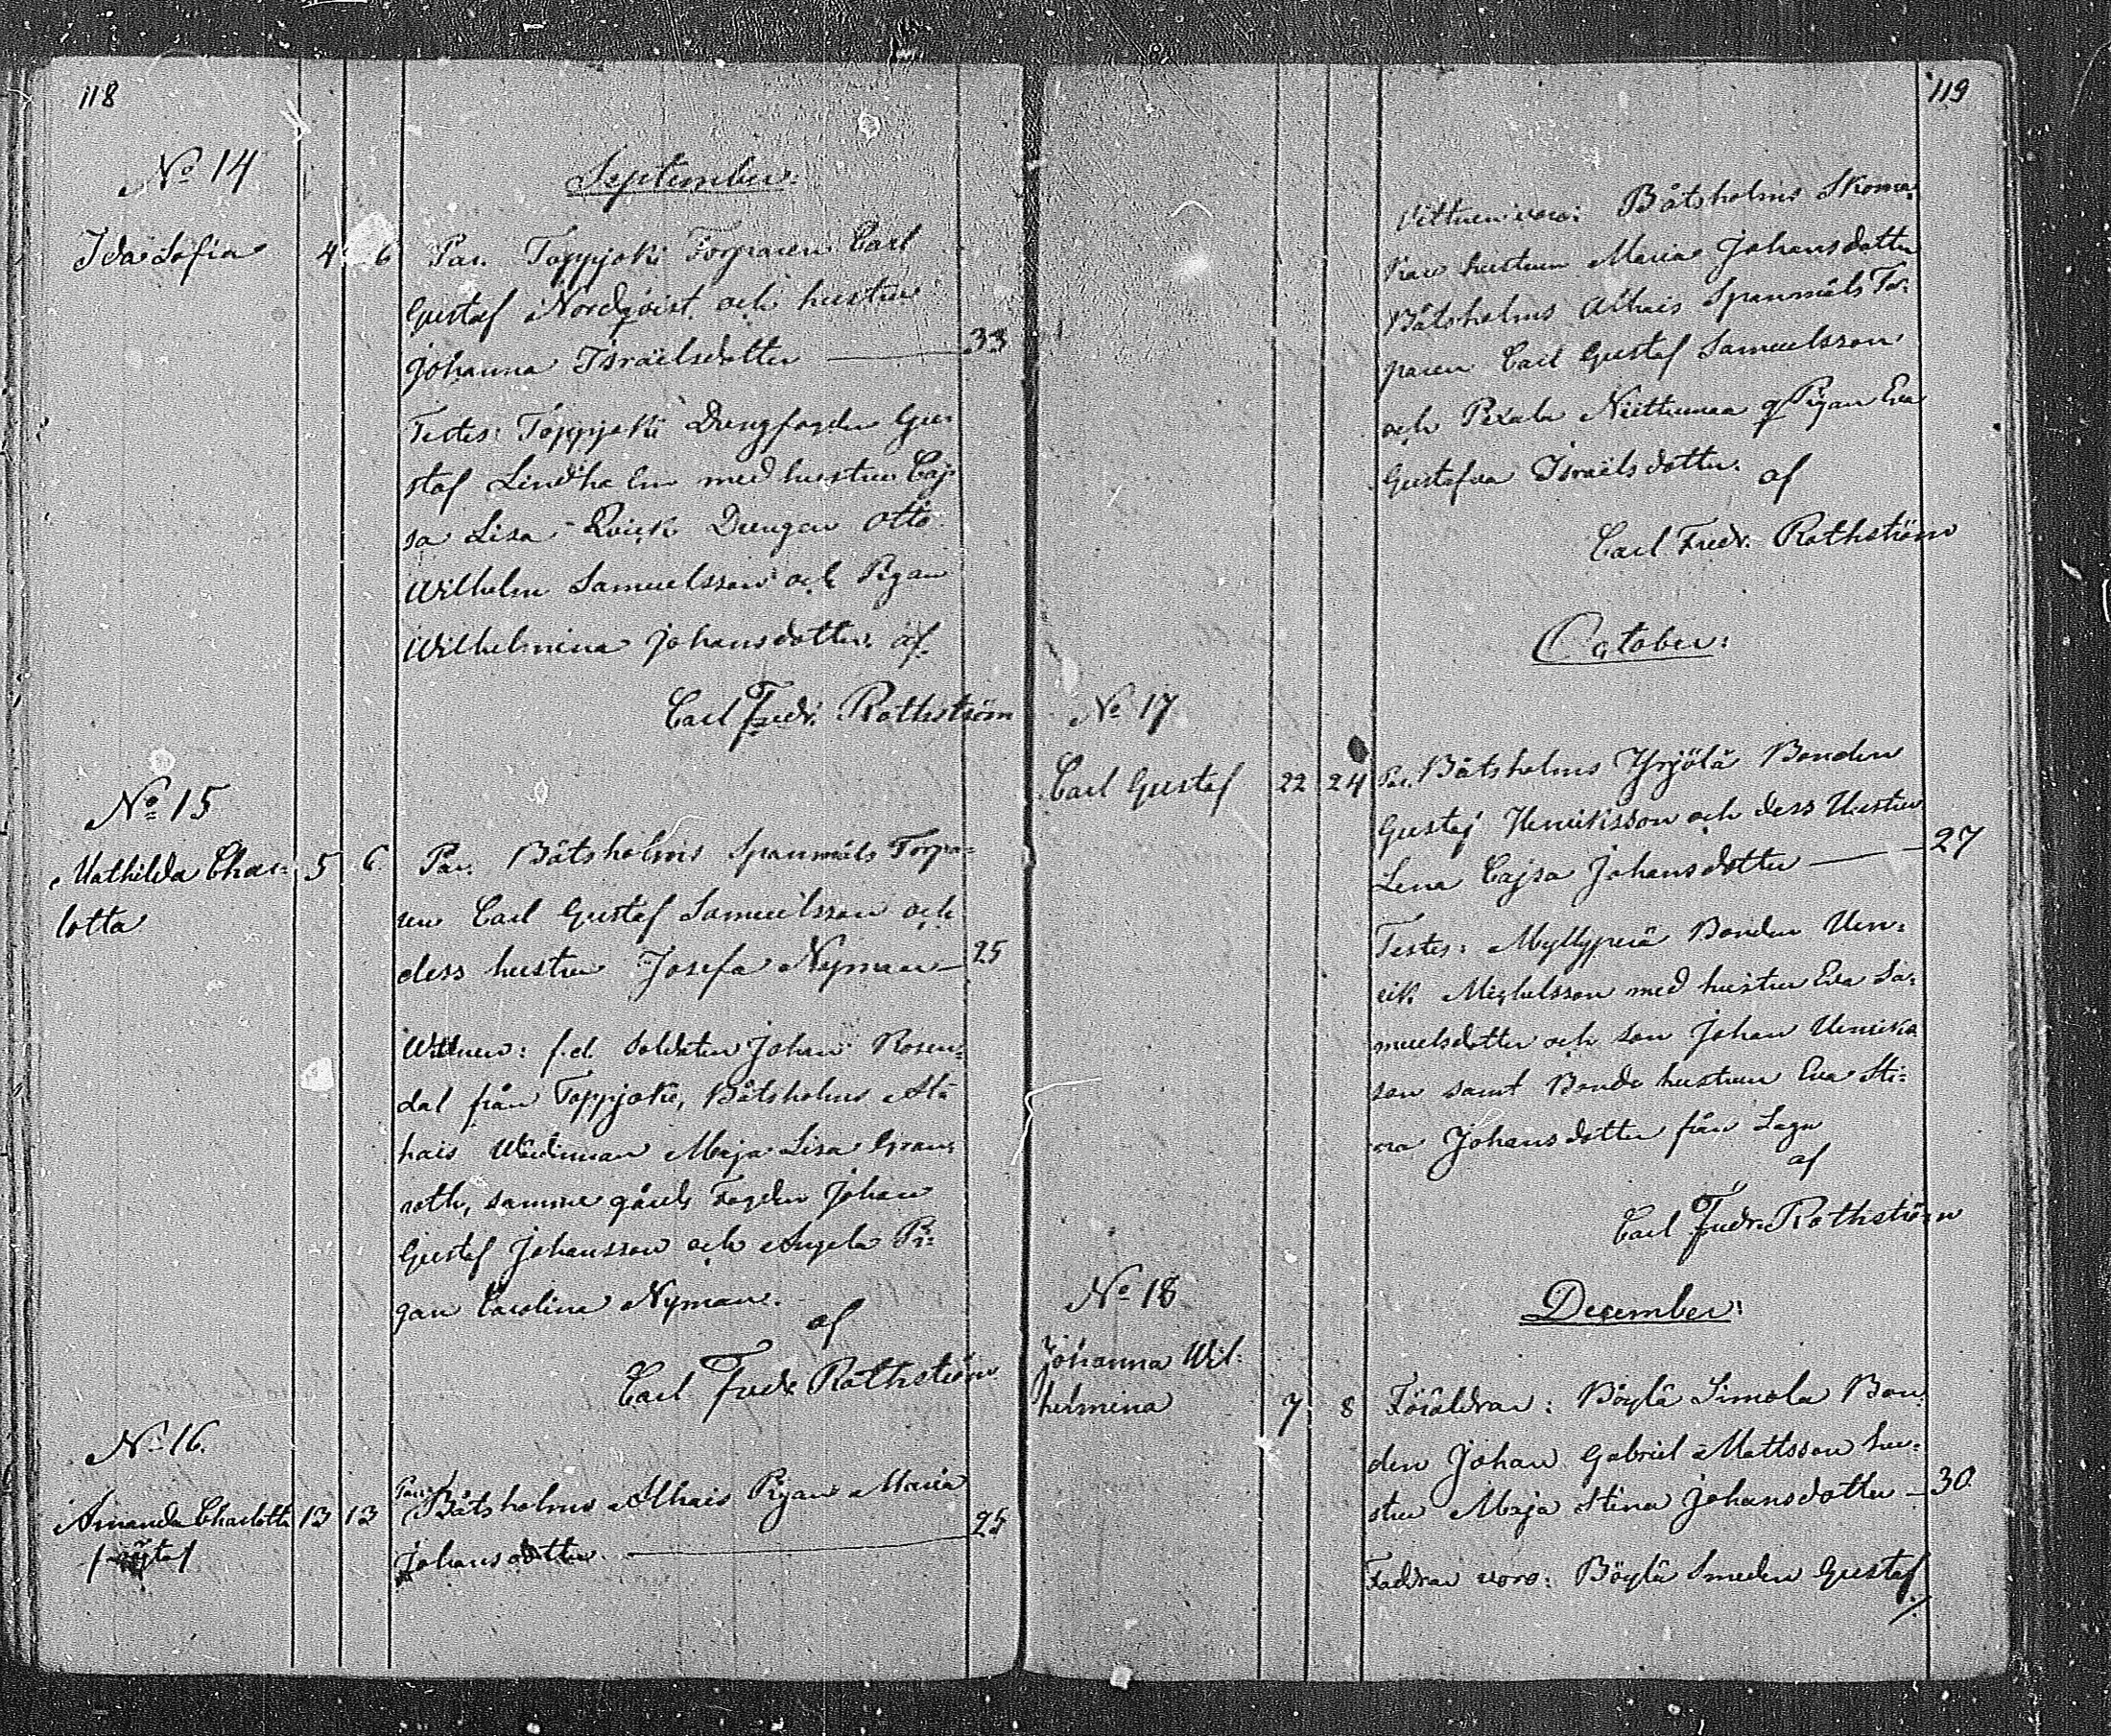 118
No 14
September.
Ida Sofia 4 6 Par. Toppjoki Torparen Carl
Gustaf Nordqvist och hustru
Johanna Israelsdotter — 33
Testes: Toppjoki Drengfogden Gu-
staf Lindholm med hustru Caj-
sa Lisa Qvick Drengen Otto
Wilhelm Samuelsson och Pigan
Wilhelmina Johansdotter. af
Carl Fredr. Rothström
No 15
Mathilda Char- 5 6 Par. Båtsholms Spanmåls Torpa-
lotta
ren Carl Gustaf Samuelsson och
dess hustru Josefa Nyman — 25
Wittnen: f.d. Soldaten Johan Rosen-
dal från Toppjoki, Båtsholms Al-
hais Maja Lisa Gran-
roth, samme gårds Fogden Johan
Gustaf Johansson och Pi-
gan Carolina Nyman.
af
Carl Fredr. Rothström
No 16.
Amanda Charlotta 13 13 Båtsholms Alhais Pigan Maria
Johansdotter. — 25
119
Vittnen voro: Båtsholms Skoma-
kare hustrun Maria Johansdotter
Båtsholms Alhais Spanmåls Tor-
paren Carl Gustaf Samuelsson
och Pigan Eva
Gustafva Israelsdotter.
af
Carl Fredr. Rothström
October:
No 17
Carl Gustaf 22 24 Par. Båtsholms Yrjölä Bonden
Gustaf Henriksson och dess Hustru
Lena Cajsa Johansdotter — 27
Testes: Myllyperä Bonden Hen-
rik Michelsson med hustru Eva Sa-
muelsdotter och son Johan Henriks
son samt Bonde hustrun Eva Sti-
na Johansdotter från
af
Carl Fredr. Rothström
No 18
December:
Johanna Wil-
helmina 7 8 Föräldrar: Böylä Simola Bon-
den Johan Gabriel Mattsson hu-
stru Maja Stina Johansdotter — 30.
Faddrar voro: Böylä Smeden Gustaf